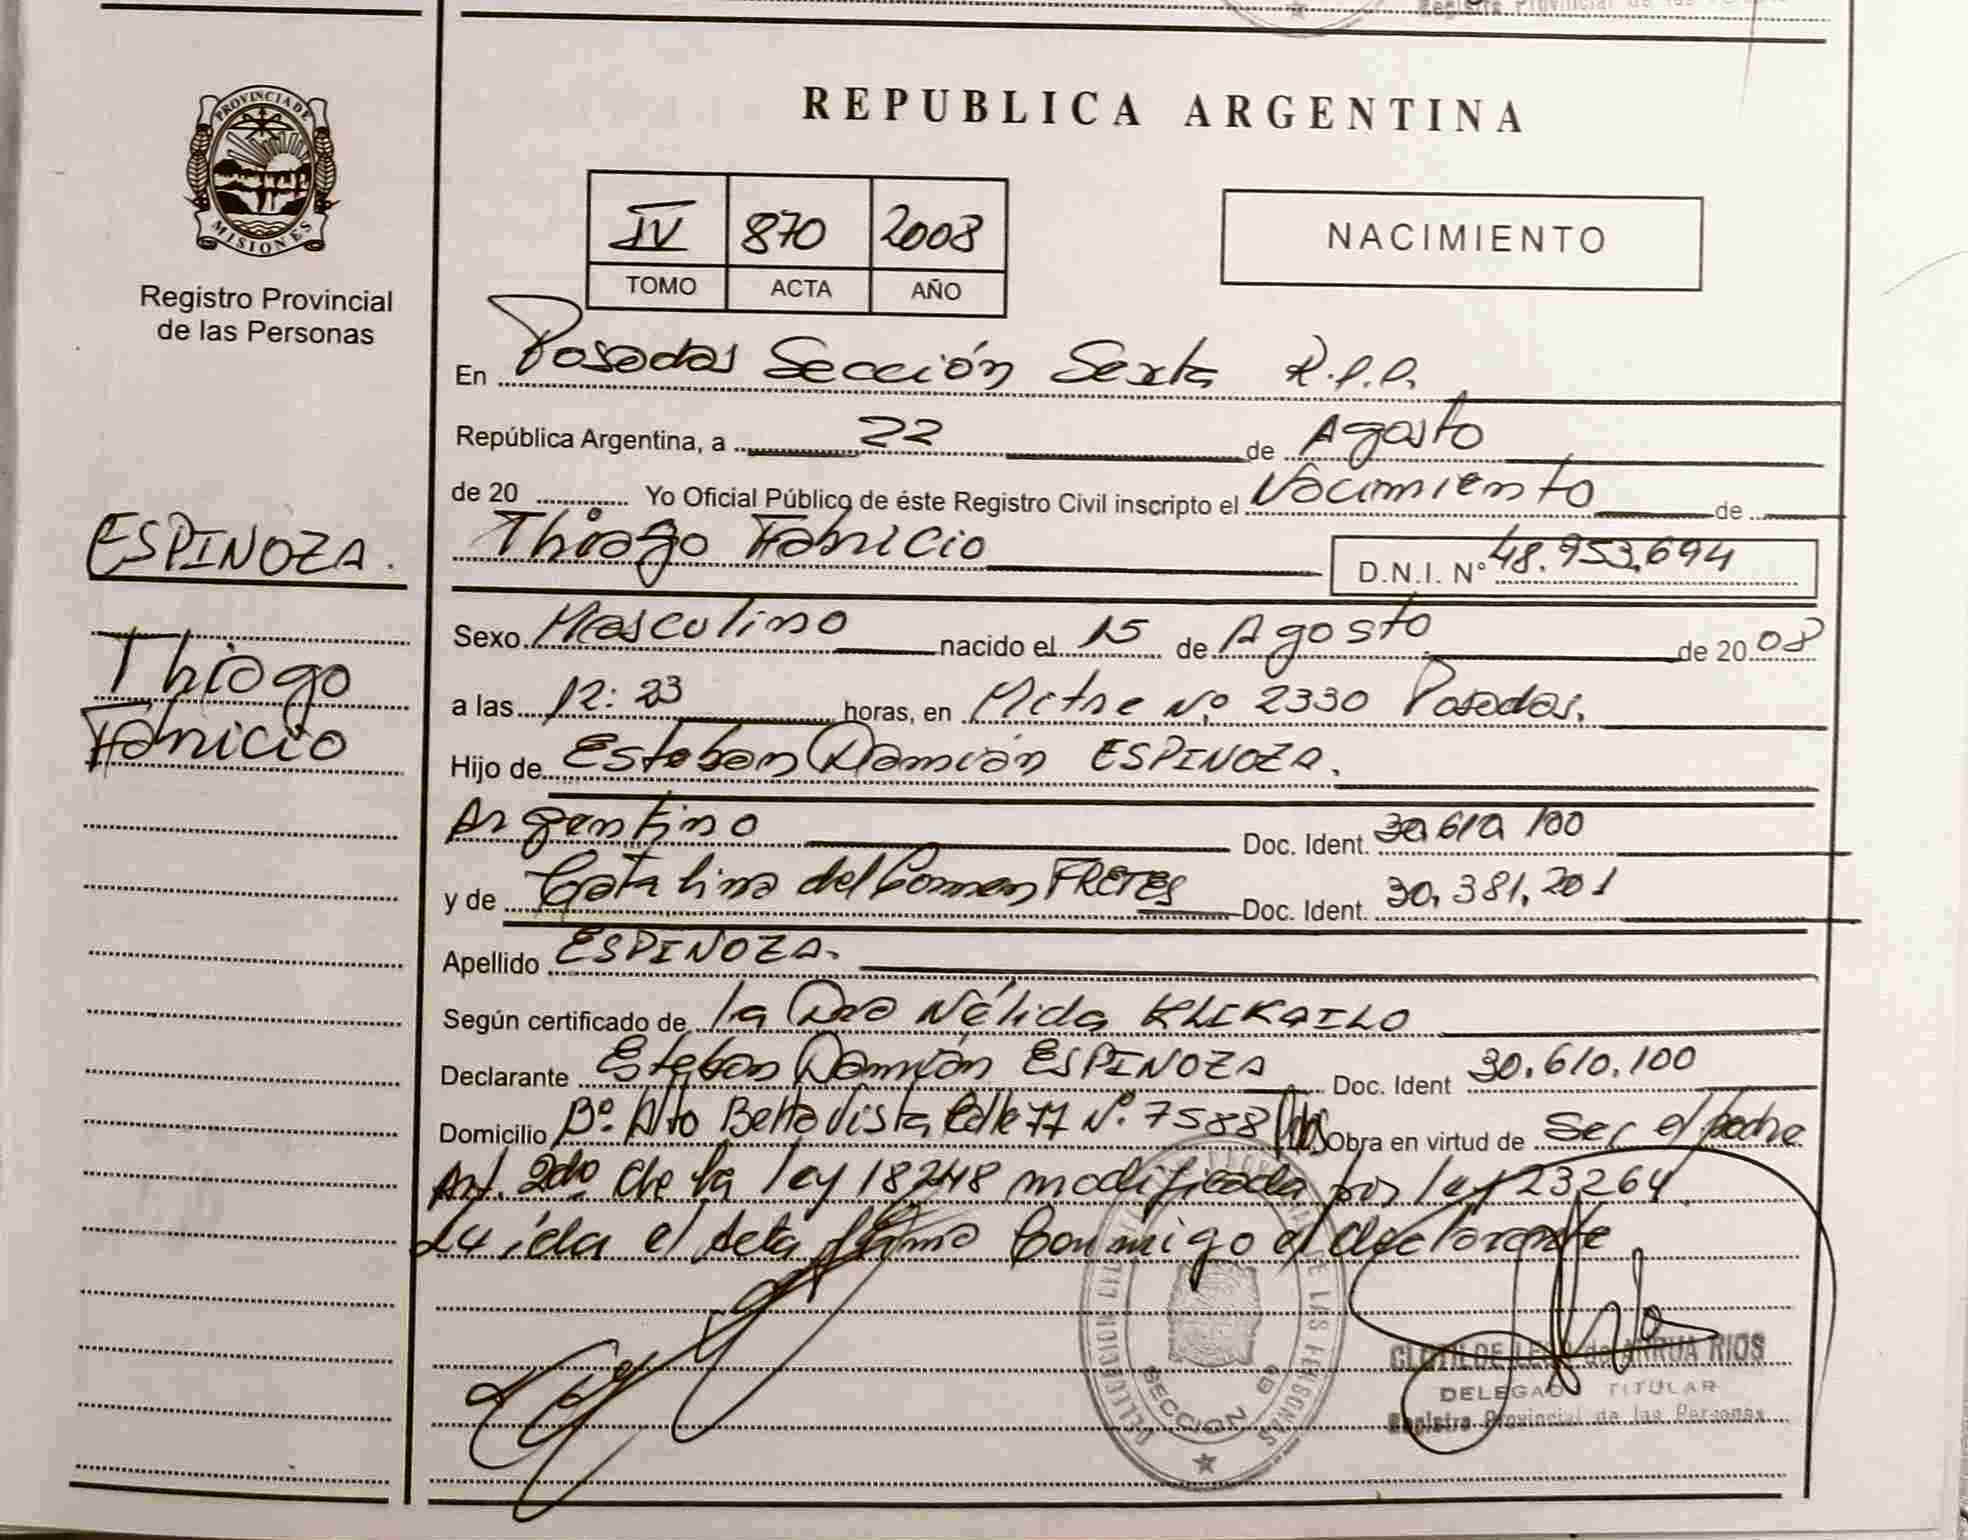 REPUBLICA ARGENTINA
PROVINCIA DE
MISIONES
Registro Provincial
de las Personas
IV 870 2008
TOMO ACTA AÑO
NACIMIENTO
En Posadas Sección Sexta R.P.P.
República Argentina, a 22 de Agosto
de 20 Yo Oficial Público de éste Registro Civil inscripto el Nacimiento de
Thiago Fabricio D.N.I. Nº 48.953.694
ESPINOZA.
Thiago
Fabricio
Sexo Masculino nacido el 15 de Agosto de 2008
a las 12:23 horas, en Mitre Nº 2330 Posadas.
Hijo de Esteban Damián ESPINOZA.
Argentino Doc. Ident. 30.610.100
y de Catalina del Carmen FRETES Doc. Ident. 30.381.201
Apellido ESPINOZA.
Según certificado de la Dra Nélida KLIKAILO
Declarante Esteban Damián ESPINOZA Doc. Ident 30.610.100
Domicilio Bº. Alto Bella Vista Calle 77 Nº. 7588 Obra en virtud de Ser el padre
Art. 2do de la ley 18248 modificada por ley 23264
Leída el Acta firma Conmigo el declarante
DE LAS PERSONAS
SECCION
CLOTILDE de ARRUA RIOS
DELEGADO TITULAR
Registro Provincial de las Personas